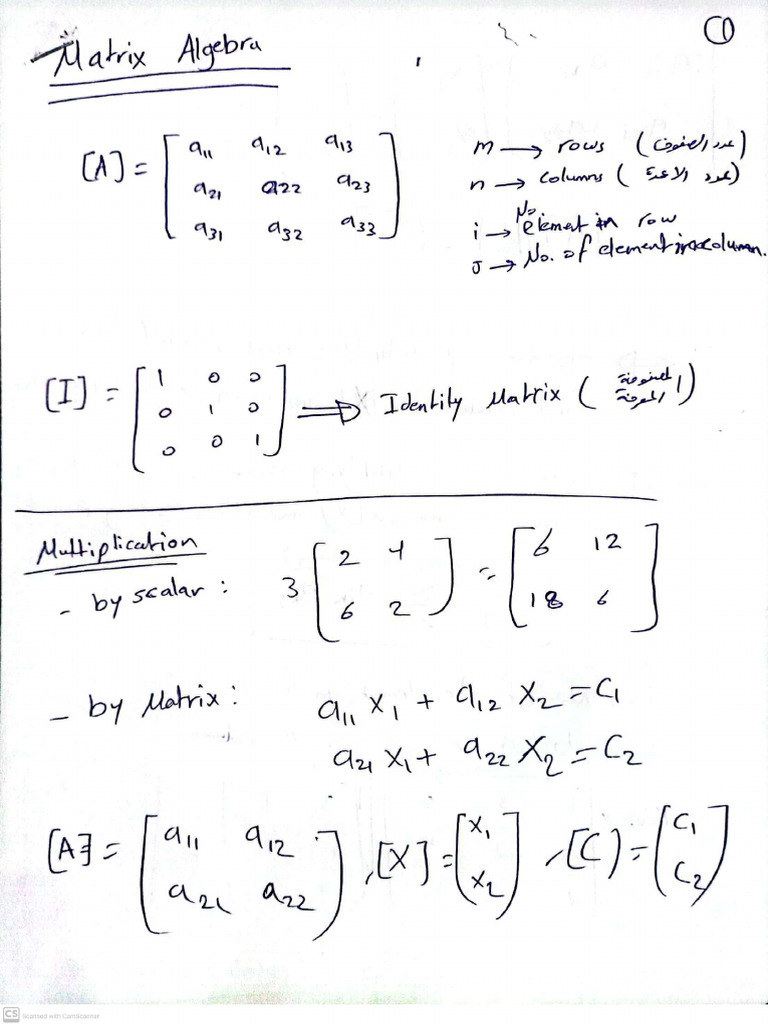 ①
Matrix Algebra
[A] = [a₁₁ a₁₂ a₁₃
a₂₁ a₂₂ a₂₃
a₃₁ a₃₂ a₃₃]
m → rows (عدد الصفوف)
n → columns (عدد الاعمدة)
i → No. element in row
J → No. of element in column.
[I] = [1 0 0
0 1 0
0 0 1] ⇒ Identity Matrix (المصفوفة
)
Multiplication
- by scalar : 3 [2 4
6 2] = [6 12
18 6]
- by Matrix : a₁₁ x₁ + a₁₂ x₂ = C₁
a₂₁ x₁ + a₂₂ x₂ = C₂
[A] = [a₁₁ a₁₂
a₂₁ a₂₂] , [X] = [x₁
x₂] , [C] = [C₁
C₂]
CS Scanned with CamScanner